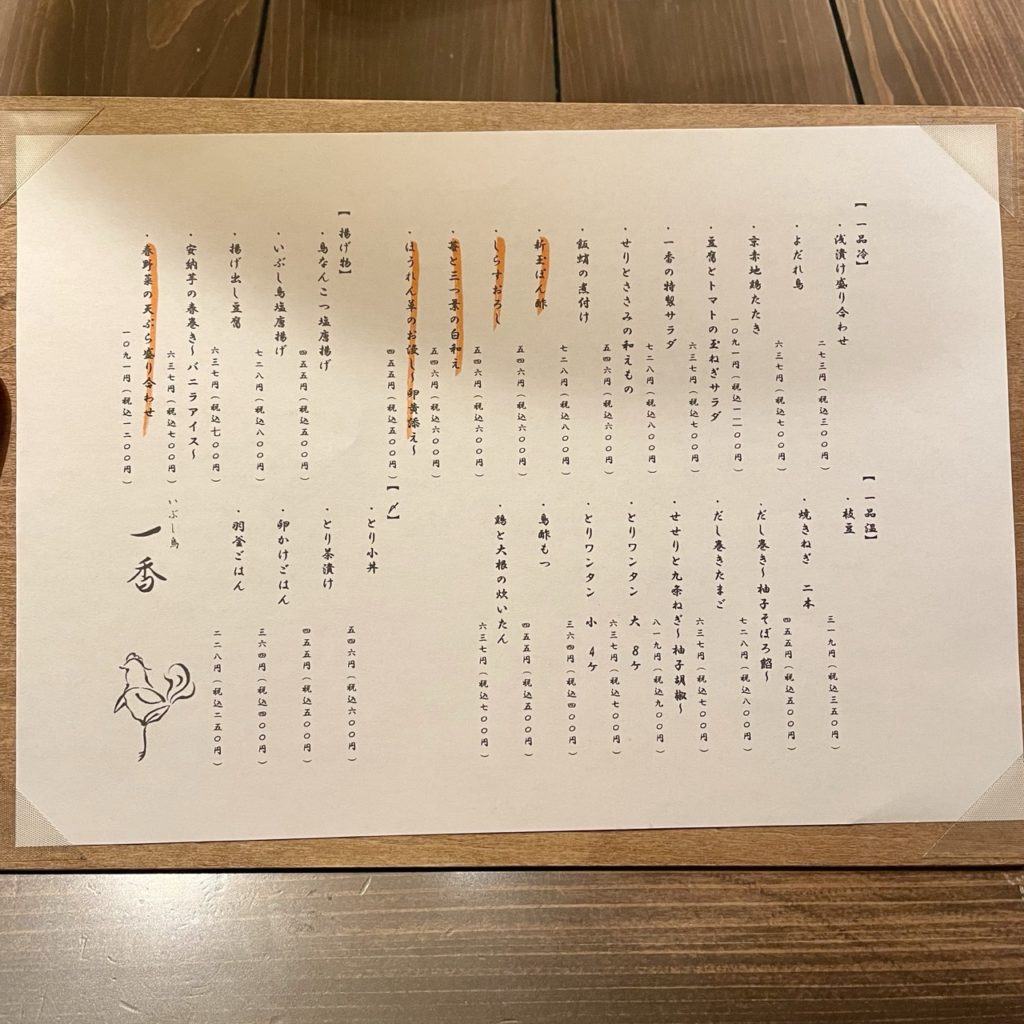 【一品冷】
・浅漬け盛り合わせ
二七三円（税込三〇〇円）
・よだれ鳥
六三七円（税込七〇〇円）
・京赤地鶏たたき
一〇九一円（税込一二〇〇円）
・豆腐とトマトの玉ねぎサラダ
六三七円（税込七〇〇円）
・一香の特製サラダ
七二八円（税込八〇〇円）
・せりとささみの和えもの
五四六円（税込六〇〇円）
・飯蛸の煮付け
七二八円（税込八〇〇円）
・新玉ぽん酢
五四六円（税込六〇〇円）
・しらすおろし
五四六円（税込六〇〇円）
・苺と三つ葉の白和え
五四六円（税込六〇〇円）
・ほうれん草のお浸し〜卵黄添え〜
四五五円（税込五〇〇円）
【揚げ物】
・鳥なんこつ塩唐揚げ
四五五円（税込五〇〇円）
・いぶし鳥塩唐揚げ
七二八円（税込八〇〇円）
・揚げ出し豆腐
六三七円（税込七〇〇円）
・安納芋の春巻き〜バニラアイス〜
六三七円（税込七〇〇円）
・春野菜の天ぷら盛り合わせ
一〇九一円（税込一二〇〇円）
【一品温】
・枝豆
三一九円（税込三五〇円）
・焼きねぎ 二本
四五五円（税込五〇〇円）
・だし巻き〜柚子そぼろ餡〜
七二八円（税込八〇〇円）
・だし巻きたまご
六三七円（税込七〇〇円）
・せせりと九条ねぎ〜柚子胡椒〜
八一九円（税込九〇〇円）
・とりワンタン 大 8ケ
六三七円（税込七〇〇円）
・とりワンタン 小 4ケ
三六四円（税込四〇〇円）
・鳥酢もつ
四五五円（税込五〇〇円）
・鶏と大根の炊いたん
六三七円（税込七〇〇円）
【〆】
・とり小丼
五四六円（税込六〇〇円）
・とり茶漬け
四五五円（税込五〇〇円）
・卵かけごはん
三六四円（税込四〇〇円）
・羽釜ごはん
二二八円（税込二五〇円）
いぶし鳥
一香